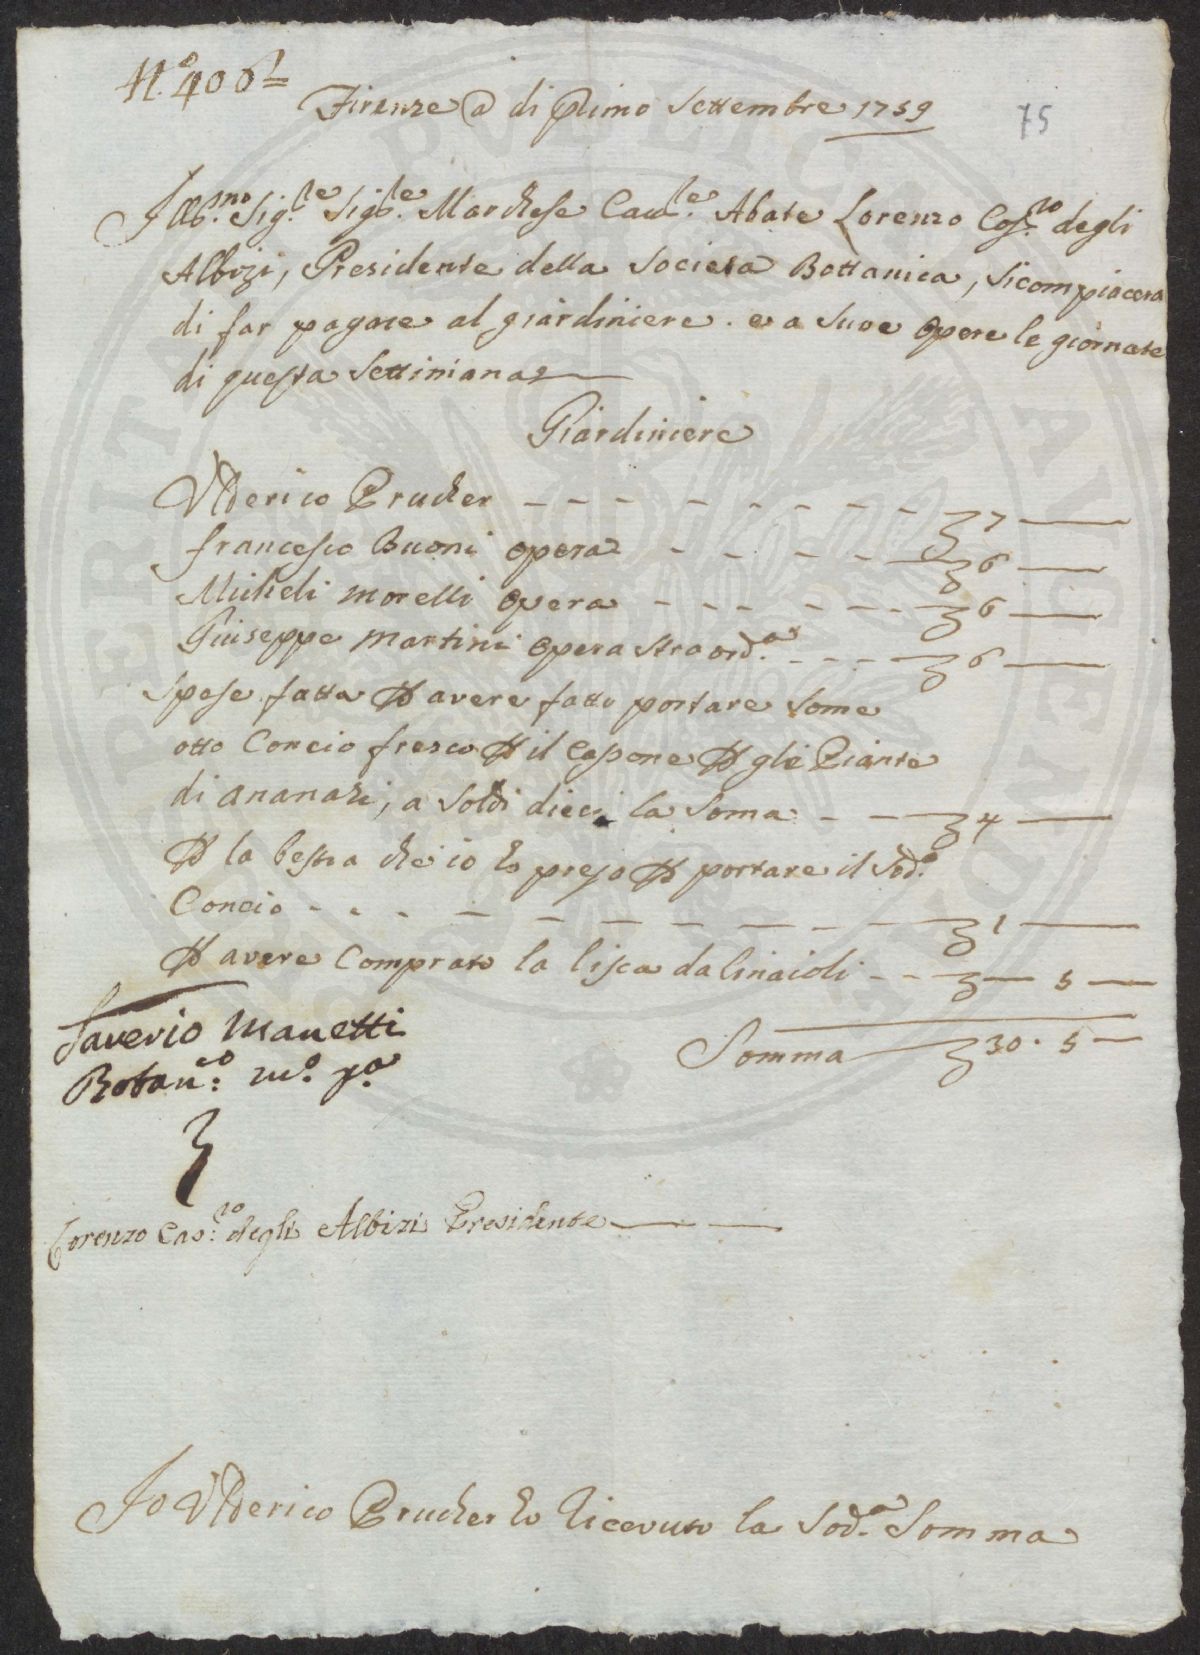 N.º 406
75
Firenze @ di Primo Settembre 1759
Ill.mo Sig.re Sig.re Marchese Cav.re Abate Lorenzo Cos.zo degli
Albizi, Presidente della Societa Bottanica, si compiacera
di far pagare al giardiniere. e a sue opere le giornate
di questa settimana
Giardiniere
Ulderico Prucher - - - - - - - - £ 7 —
francesco Buoni opera - - - - - £ 6 —
Micheli Morelli opera - - - - - - £ 6 —
Giuseppe Martini opera straord.a - - - £ 6 —
Spese fatta P avere fatto portare some
otto Concio fresco P il Casone P gle Piante
di ananasi, a soldi dieci la soma - - £ 4 —
P la bestia che io ho preso P portare il sod.o
Concio - - - - - - - - - £ 1 —
P avere Comprato la lisca da linaioli - - £ — 5 —
Somma £ 30 . 5 —
Saverio Manetti
Botan.co m.o p.a
Lorenzo Cas.zo degli Albizi Presidente
Io Ulderico Prucher ho Ricevuto la sod.a Somma